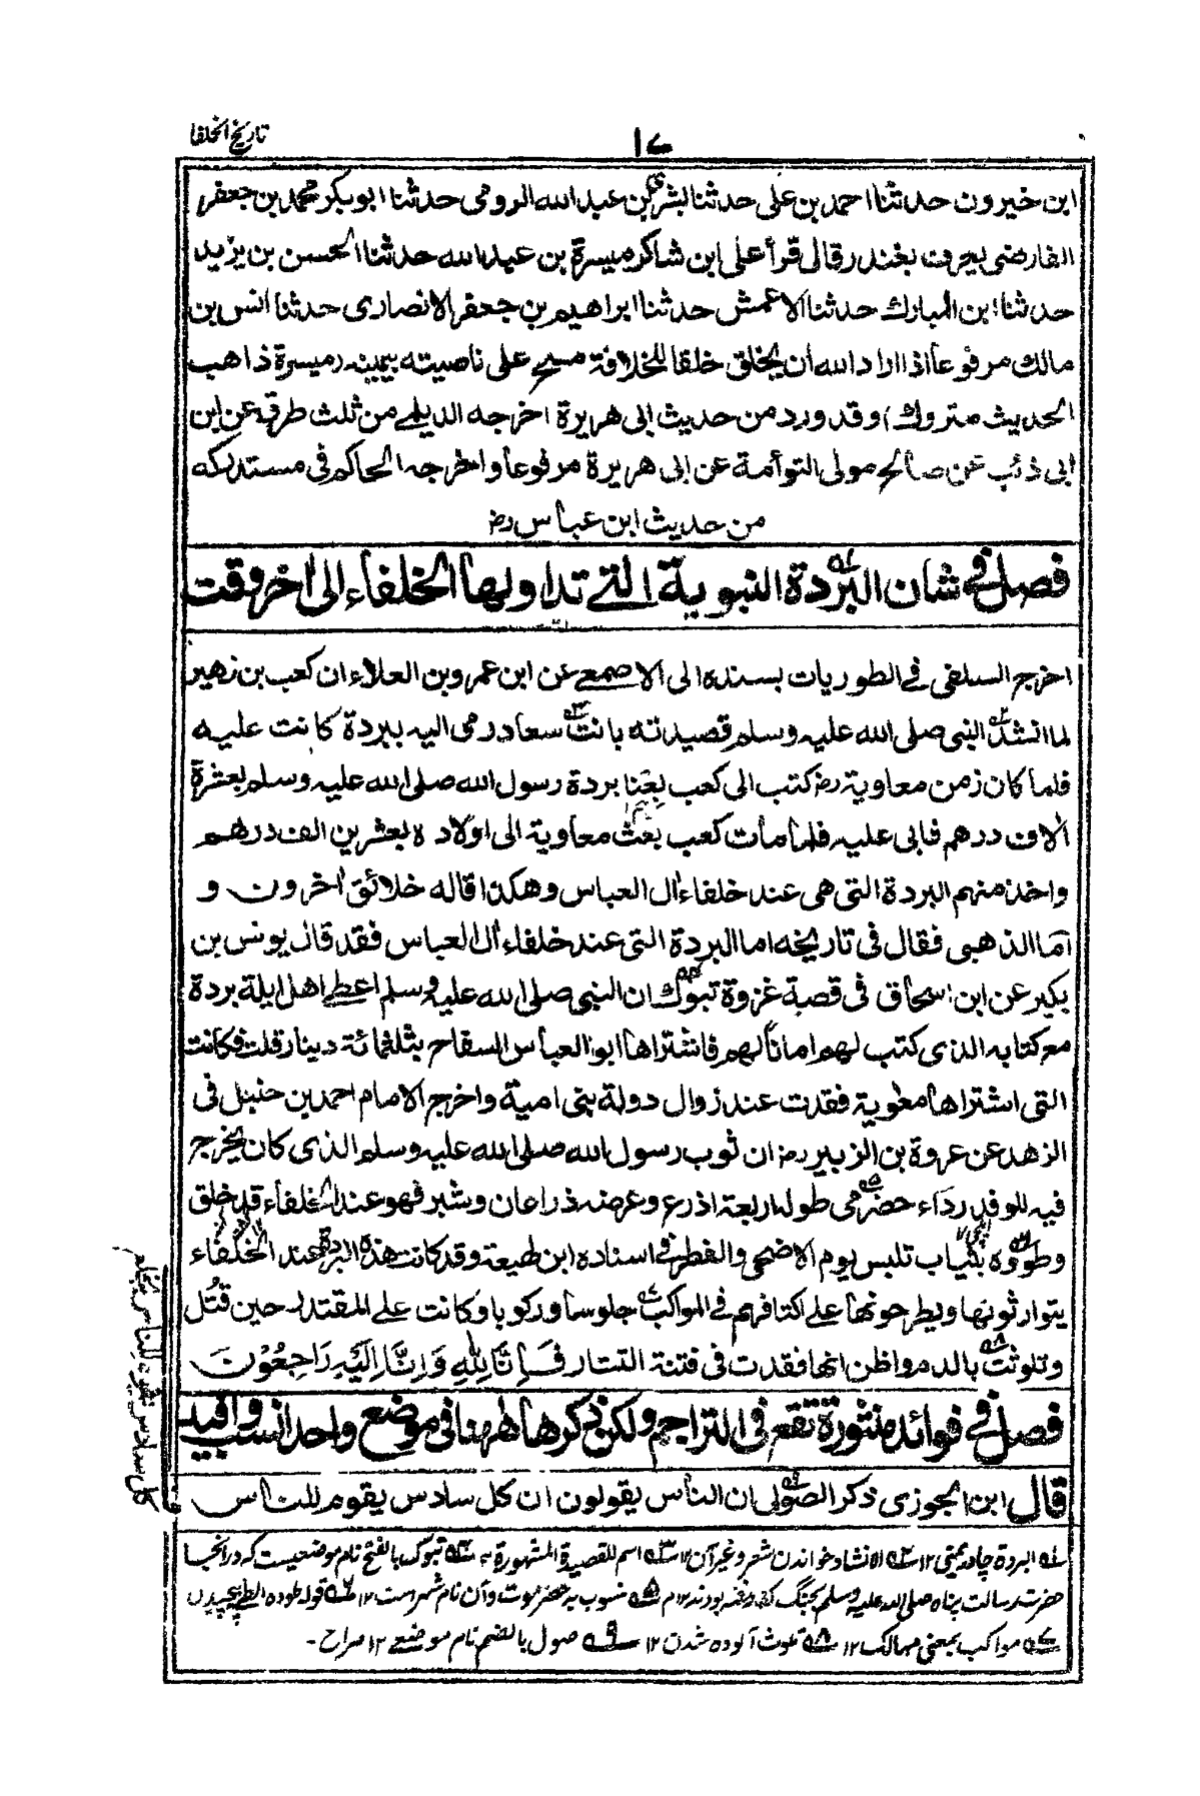 تاريخ الخلفا
١٧
ابن خيرون حدثنا احمد بن على حدثنا بشرى بن عبد الله الرومى حدثنا ابوبكر محمد بن جعفر
الفارضى يعرف بغندر قال قرأ على ابن شاكر ميسرة بن عبد الله حدثنا الحسن بن يزيد
حدثنا ابن المبارك حدثنا الاعمش حدثنا ابراهيم بن جعفر الانصارى حدثنا انس بن
مالك مرفوعا اذا اراد الله أن يخلق خلقا للخلافة مسح على ناصيته بيمينه (ميسرة ذاهب
الحديث متروك) وقد ورد من حديث ابى هريرة اخرجه الديلمے من ثلث طرق عن ابن
ابى ذئب عن صالح مولى التوأمة عن ابى هريرة مرفوعا واخرجه الحاكم فى مستدركه
من حديث ابن عباس رضـ
فصل فے شان البردة النبوية التے تداولها الخلفاء الى اخر وقت
اخرج السلفى فے الطوريات بسنده الى الاصمعے عن ابن عمرو بن العلاء ان كعب بن زهير
لما انشد النبى صلى الله عليه وسلم قصيدته بانت سعاد رمى اليه ببردة كانت عليه
فلما كان زمن معاوية رضـ كتب الى كعب بعنا بردة رسول الله صلى الله عليه وسلم بعشرة
الاف درهم فابى عليه فلما مات كعب بعث معاوية الى اولاده بعشرين الف درهم
واخذ منهم البردة التى هى عند خلفاء ال العباس وهكذا قاله خلائق اخرون و
اما الذهبى فقال فى تاريخه اما البردة التى عند خلفاء ال العباس فقد قال يونس بن
بكير عن ابن اسحاق فى قصة غزوة تبوك ان النبى صلى الله عليه وسلم اعطے اهل ايلة بردة
مع كتابه الذى كتب لهم امانا لهم فاشتراها ابو العباس السفاح بثلثمائة دينار قلت فكانت
التى اشتراها معٰوية فقدت عند زوال دولة بنى امية واخرج الامام احمد بن حنبل فى
الزهد عن عروة بن الزبير رضـ ان ثوب رسول الله صلى الله عليه وسلم الذى كان يخرج
فيه للوفد رداء حضرمى طوله اربعة اذرع وعرضه ذراعان وشبر فهو عند الخلفاء قد خلق
وطووه بثياب تلبس يوم الاضحى والفطر فے اسناده ابن لهيعة وقد كانت هذه البردة عند الخلفاء
يتوارثونها ويطرحونها علے اكتافهم فے المواكب جلوسا وركوبا وكانت علے المقتدر حين قُتل
وتلوثت بالدم واظن انها فقدت فى فتنة التتار فَاِنَّا لِلّٰهِ وَاِنَّا اِلَيْهِ رَاجِعُوْنَ
فصل فے فوائد منثورة تقع فى التراجم ولكن ذكرها ههنا فى موضع واحد انسب وافيد
قال ابن الجوزى ذكر الصولى ان الناس يقولون ان كل سادس يقوم للناس
كل سادس يقوم للناس يخلع
له البردة چادر يمنى ١٢ له الانشاد خواندن شعر وغير آن ١٢ له اسم للقصيدة المشهورة له تبوك بالفتح نام موضعيست كه در انجا
حضرت رسالت پناه صلى الله عليه وسلم بجنگ رفته بودند ١٢ م له منسوب به حضرموت وآن نام شهر است ١٢ له قوله طووه الطى پيچيدن
له مواكب بمعنى ممالك ١٢ له تلوث آلوده شدن ١٢ له صول بالضم نام موضعے ١٢ صراح ۔